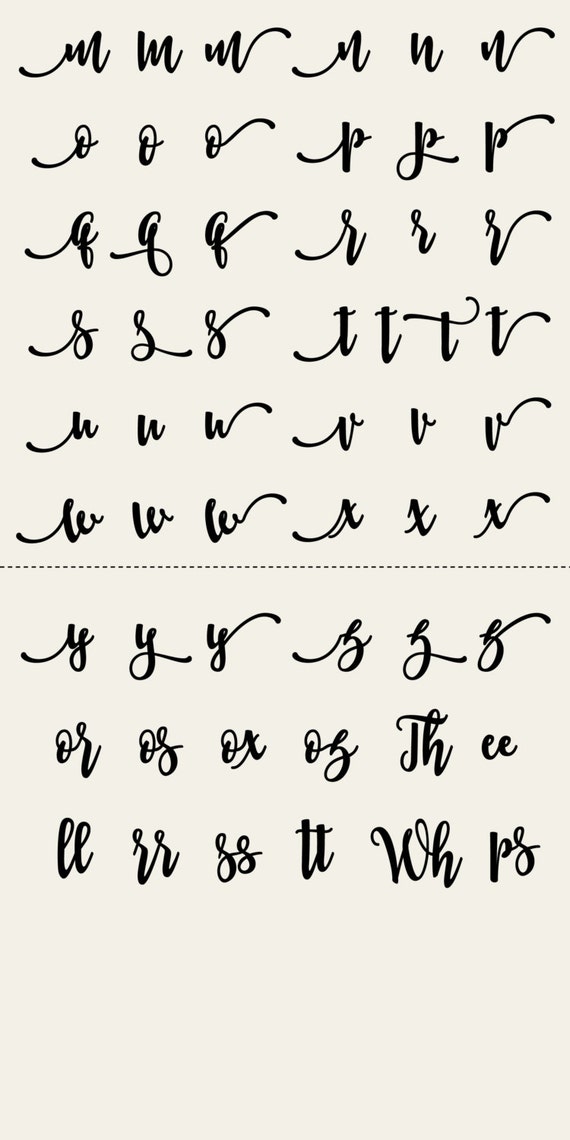 m m m n n n
o o o p p p
q q q r r r
s s s t t t t
u u u v v v
w w w x x x
y y y z z z
or os ox oz Th ee
ll rr ss tt Wh ps